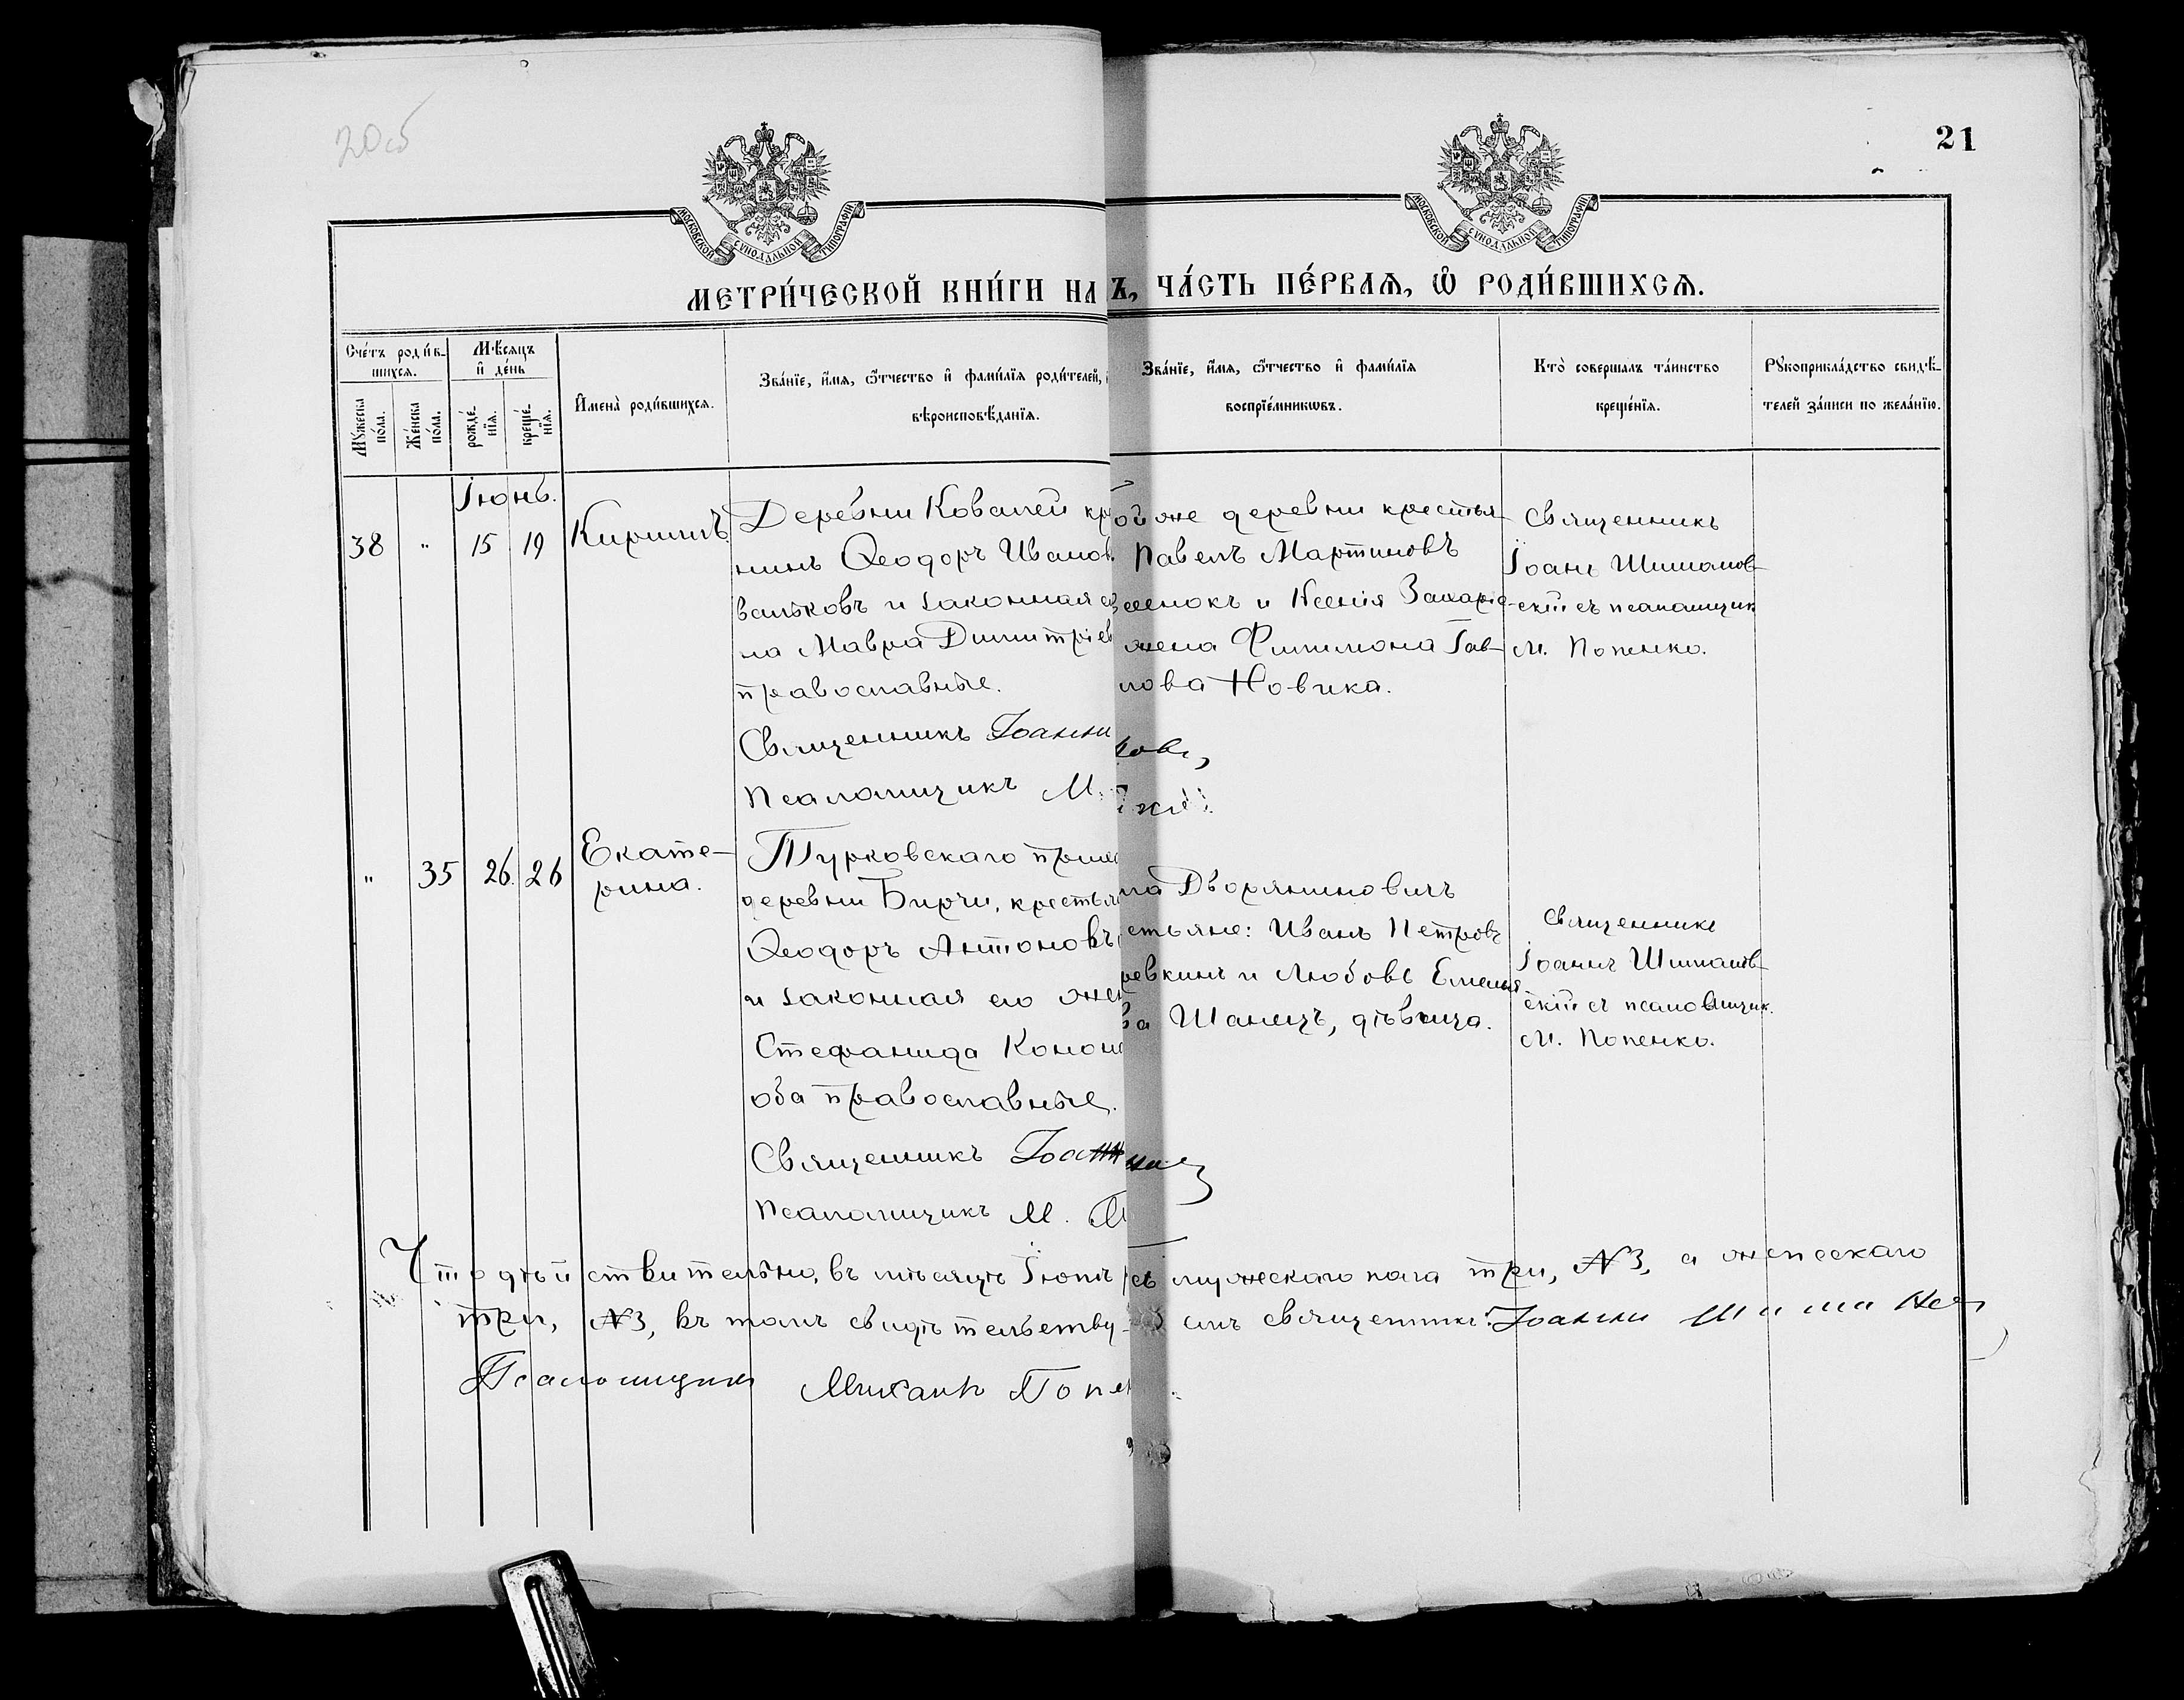 20об
21
МОСКОВСКОЙ СѴНОДАЛЬНОЙ ТИПОГРАФІИ
МОСКОВСКОЙ СѴНОДАЛЬНОЙ ТИПОГРАФІИ
МЕТРИ́ЧЕСКОЙ КНИ́ГИ НА
Ъ, ЧА́СТЬ ПЕ́РВАѦ, Ѡ РОДИ́ВШИХСѦ.
Сче́тъ роди́в-
шихсѧ.
Мꙋ́жеска
по́ла.
Же́нска
по́ла.
Мѣ́сѧцъ
и҆ де́нь
рожде́-
нїѧ.
креще́-
нїѧ.
И҆мена̀ роди́вшихсѧ.
Зва́нїе, и҆́мѧ, ѻ҆́тчество и҆ фами́лїѧ роди́телей,
вѣроисповѣ́данїѧ.
Зва́нїе, и҆́мѧ, ѻ҆́тчество и҆ фами́лїѧ
воспрїе́мникѡвъ.
Кто̀ соверша́лъ та́инство
креще́нїѧ.
Рꙋкоприкла́дство свидѣ́-
телей за́писи по жела́нїю.
Іюнь.
38 " 15 19
Кириллъ
Деревни Ковалей кр
нинъ Ѳеодоръ Иванов
вальковъ и законная е
на Мавра Димитріев
православные.
Священникъ Іоанн
Псаломщикъ М.
ой же деревни крестья
Павелъ Мартиновъ
сенокъ и Ксенія Захарі
жена Филимона Гав-
лова Новика.
Священникъ
Іоаннъ Шиманов-
скій съ псаломщик
М. Попенко.
" 35 26 26
Екате-
рина.
Турковскаго при
деревни Бирчи, крестья
Ѳеодоръ Антоновъ
и законная его жен
Стефанида Коно
оба православные.
Священникъ Іоанн
Псаломщикъ М. П
на Дворяниновичъ
стьяне: Иванъ Петровъ
ревкинъ и Любовь Емелья
ва Шанецъ, дѣвица.
Священникъ
Іоаннъ Шиманов-
скій съ псаломщик.
М. Попенко.
Что дѣйствительно, въ мѣсяцѣ Іюнѣ мужескаго пола три, №3, а женскаго
три, №3, въ томъ свидѣтельству емъ священникъ Іоаннъ
Псаломщикъ Михаилъ Попен